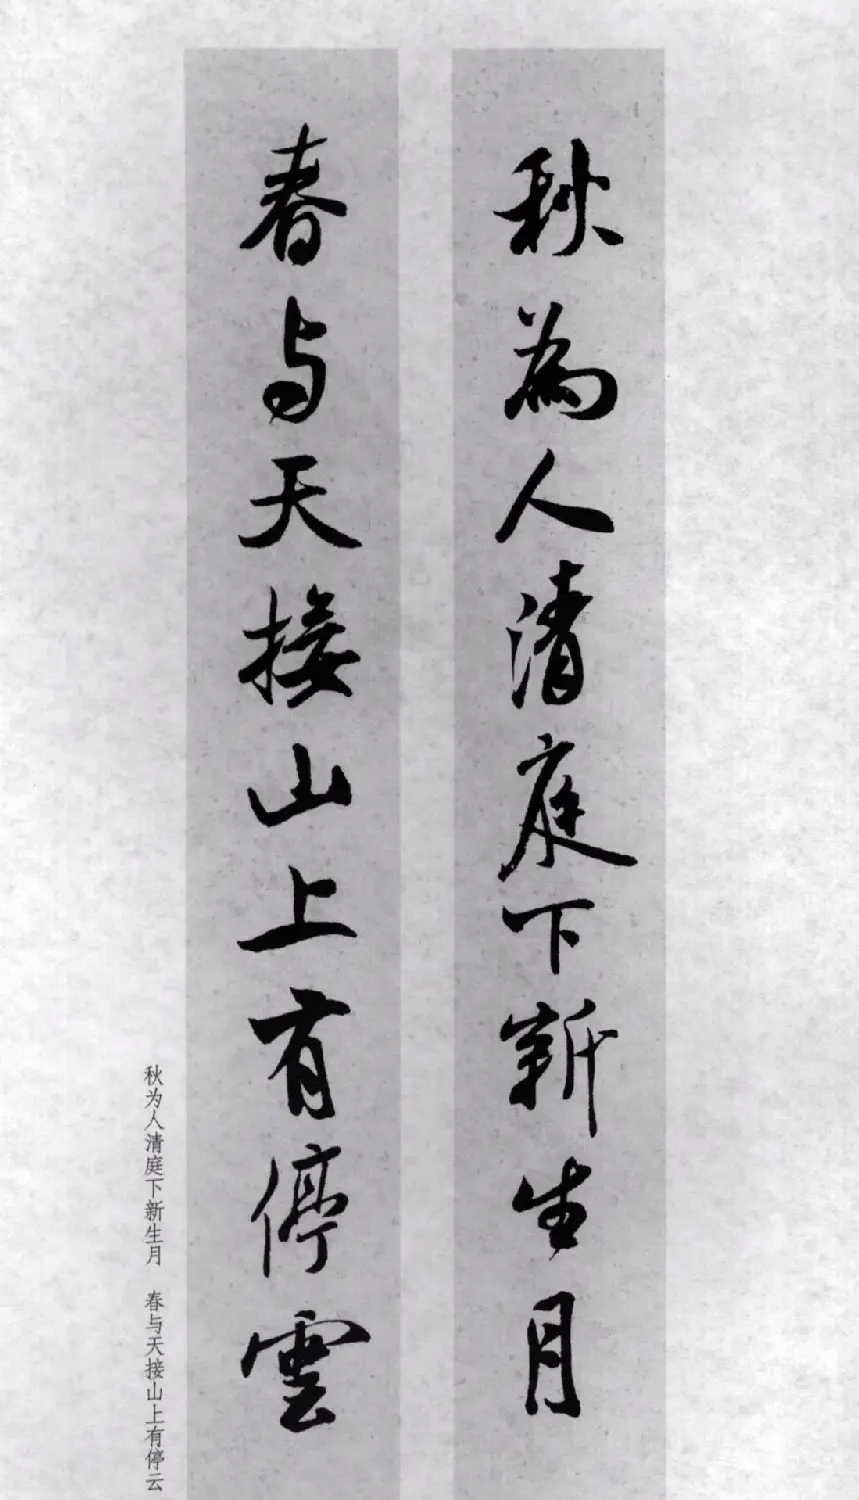 秋為人清庭下新生月
春与天接山上有停雲
秋为人清庭下新生月 春与天接山上有停云